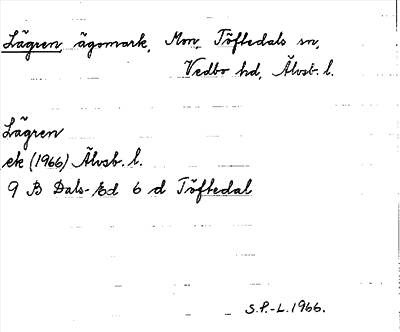 Lägren, ägomark, Mon, Töftedals sn,
Vedbo hd, Älvsb. l.
Lägren
ek (1966) Älvsb. l.
9 B Dals-Ed 6 d Töftedal
S.P.-L. 1966.